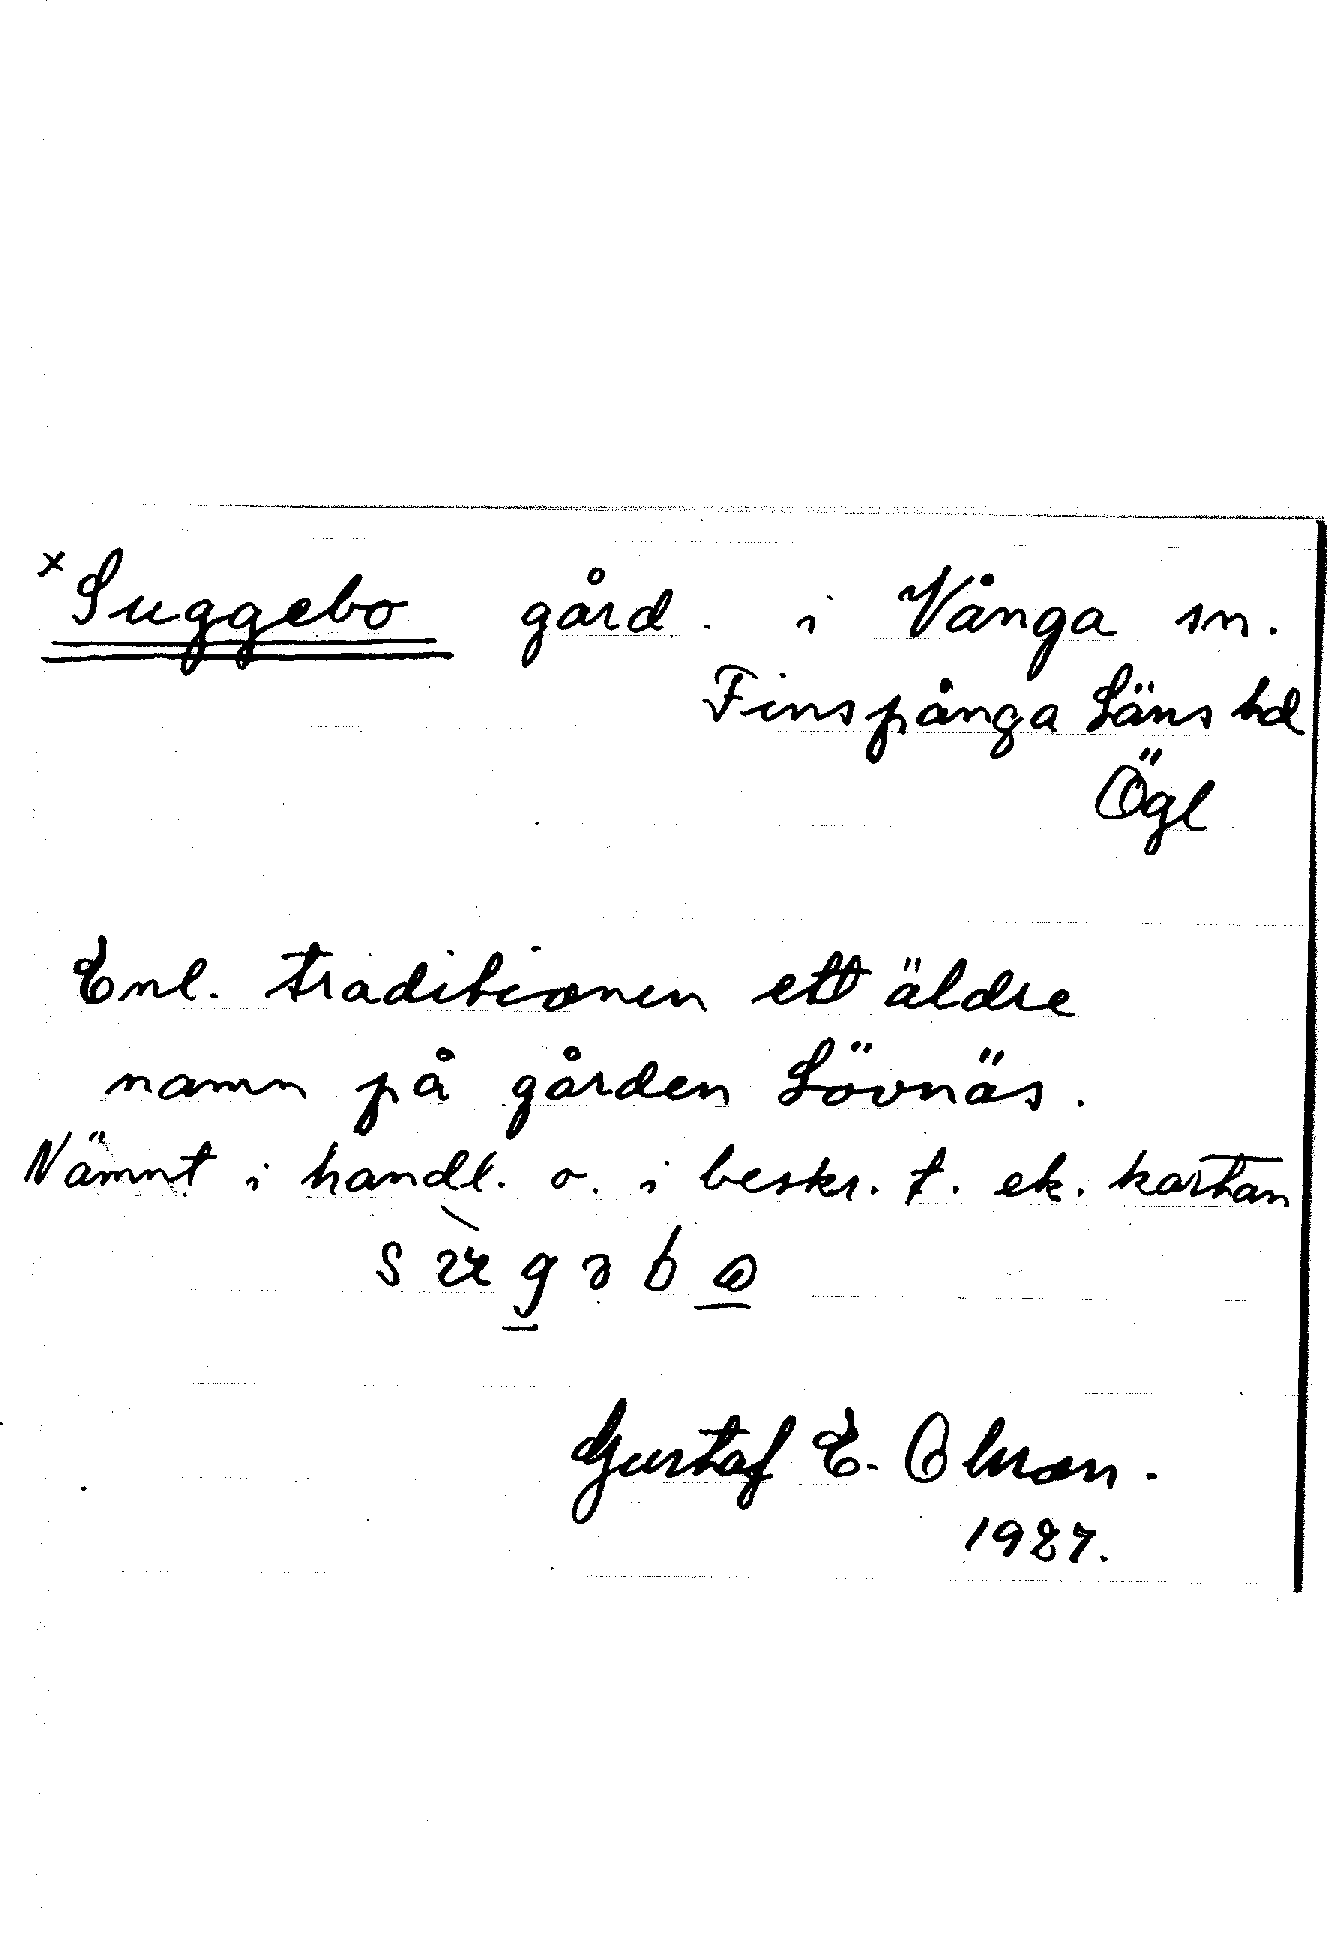 x Suggebo gård. i Vånga sn.
Finspånga Läns hd
Ögl
Enl. traditionen ett äldre
namn på gården Lövnäs.
Nämnt i handl. o. i beskr. t. ek. kartan
Gustaf E. Olsson.
1927.